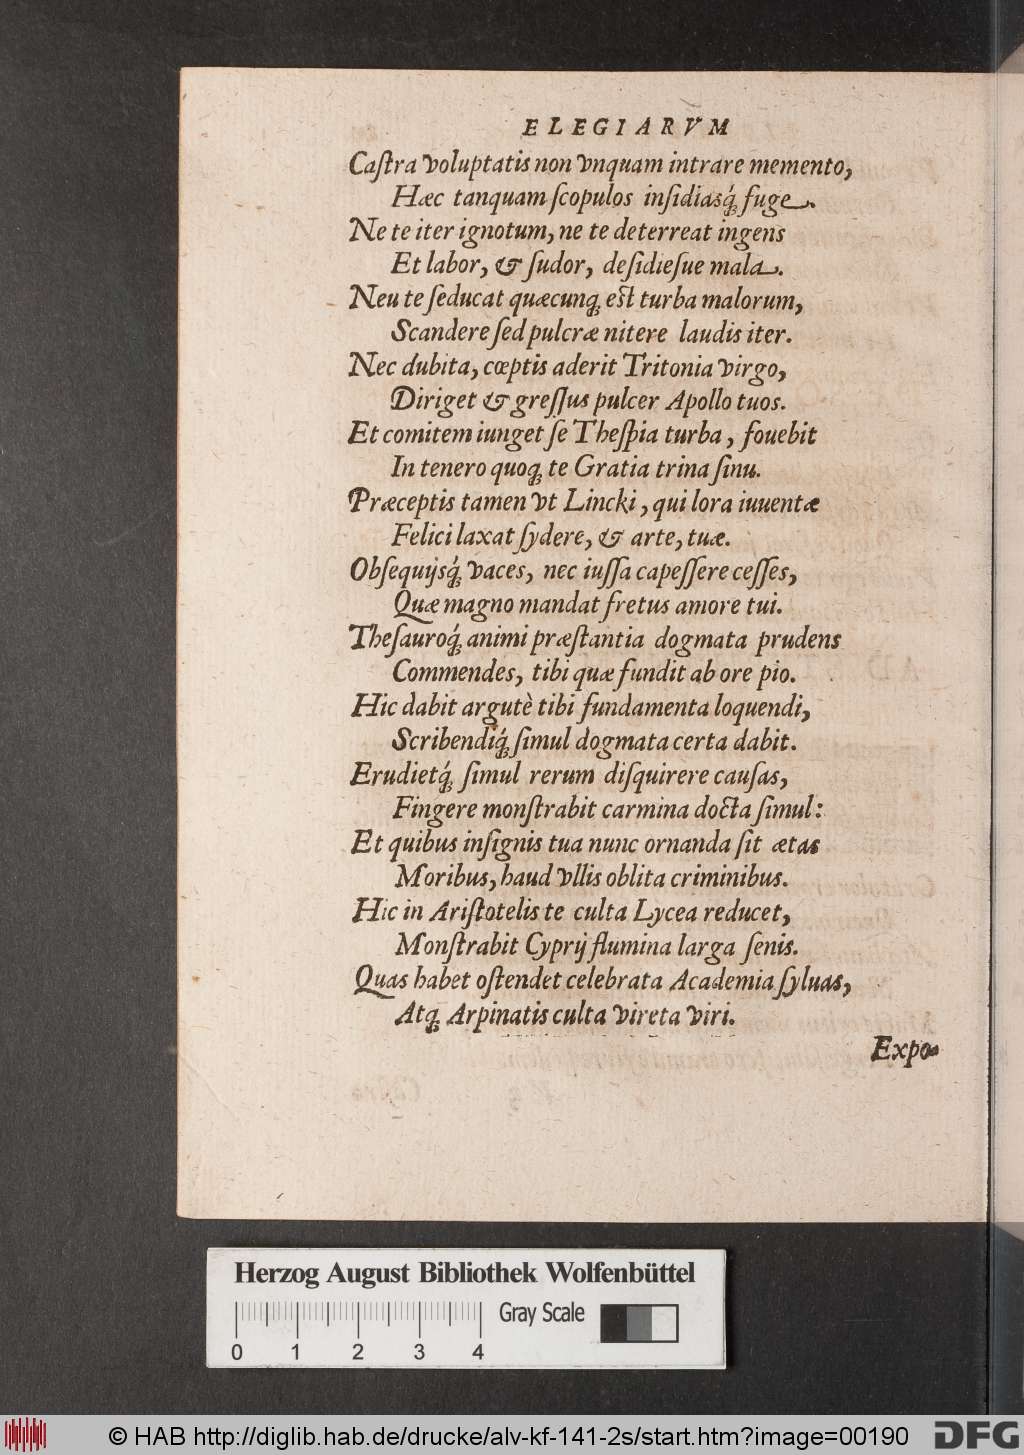 ELEGIARVM
Caſtra voluptatis non vnquam intrare memento,
Hæc tanquam ſcopulos inſidiasq́; fuge.
Ne te iter ignotum, ne te deterreat ingens
Et labor, & ſudor, deſidieſue mala.
Neu te ſeducat quæcunq; eſt turba malorum,
Scandere ſed pulcræ nitere laudis iter.
Nec dubita, cœptis aderit Tritonia virgo,
Diriget & greſſus pulcer Apollo tuos.
Et comitem iunget ſe Theſpia turba, fouebit
In tenero quoq; te Gratia trina ſinu.
Præceptis tamen vt Lincki, qui lora iuuentæ
Felici laxat ſydere, & arte, tuæ.
Obſequijsq́; vaces, nec iuſſa capeſſere ceſſes,
Quæ magno mandat fretus amore tui.
Theſauroq́; animi præſtantia dogmata prudens
Commendes, tibi quæ fundit ab ore pio.
Hic dabit argutè tibi fundamenta loquendi,
Scribendiq́; ſimul dogmata certa dabit.
Erudietq́; ſimul rerum diſquirere cauſas,
Fingere monſtrabit carmina docta ſimul:
Et quibus inſignis tua nunc ornanda ſit ætas
Moribus, haud vllis oblita criminibus.
Hic in Ariſtotelis te culta Lycea reducet,
Monſtrabit Cyprij flumina larga ſenis.
Quas habet oſtendet celebrata Academia ſyluas,
Atq; Arpinatis culta vireta viri.
Expo-
Herzog August Bibliothek Wolfenbüttel
Gray Scale
0 1 2 3 4
© HAB http://diglib.hab.de/drucke/alv-kf-141-2s/start.htm?image=00190
DFG